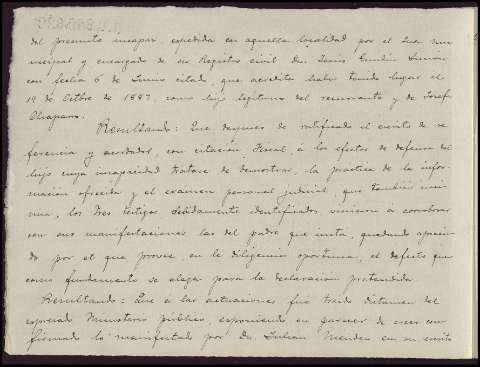 del presunto incapaz, expedida en aquella localidad por el Juez mu
nicipal y encargado de su Registro civil Dn. Jesús
con fecha 6 de Junio citado, que acredita haber tenido lugar el
19 de Octbre de 1887, como hijo legítimo del recurrente y de Josefa
Resultando: Que despues de ratificado el escrito de re
ferencia y acordados, con citación Fiscal, á los efectos de defensa del
hijo cuya incapacidad tratase de demostrar, la práctica de la infor-
mación ofrecida y el examen personal judicial, que tambien
los tres testigos debidamente identificados, vinieron á corroborar
con sus manifestaciones las del padre que insta, quedando aprecia
do por el que provee, en la diligencia oportuna, el defecto que
como fundamento se alega para la declaracion pretendida.
Resultando: Que á las actuaciones fué traido dictamen del
expresado Ministerio público, exponiendo su parecer de creer con
firmado lo manifestado por Dn. Julian Mendez en su escrito